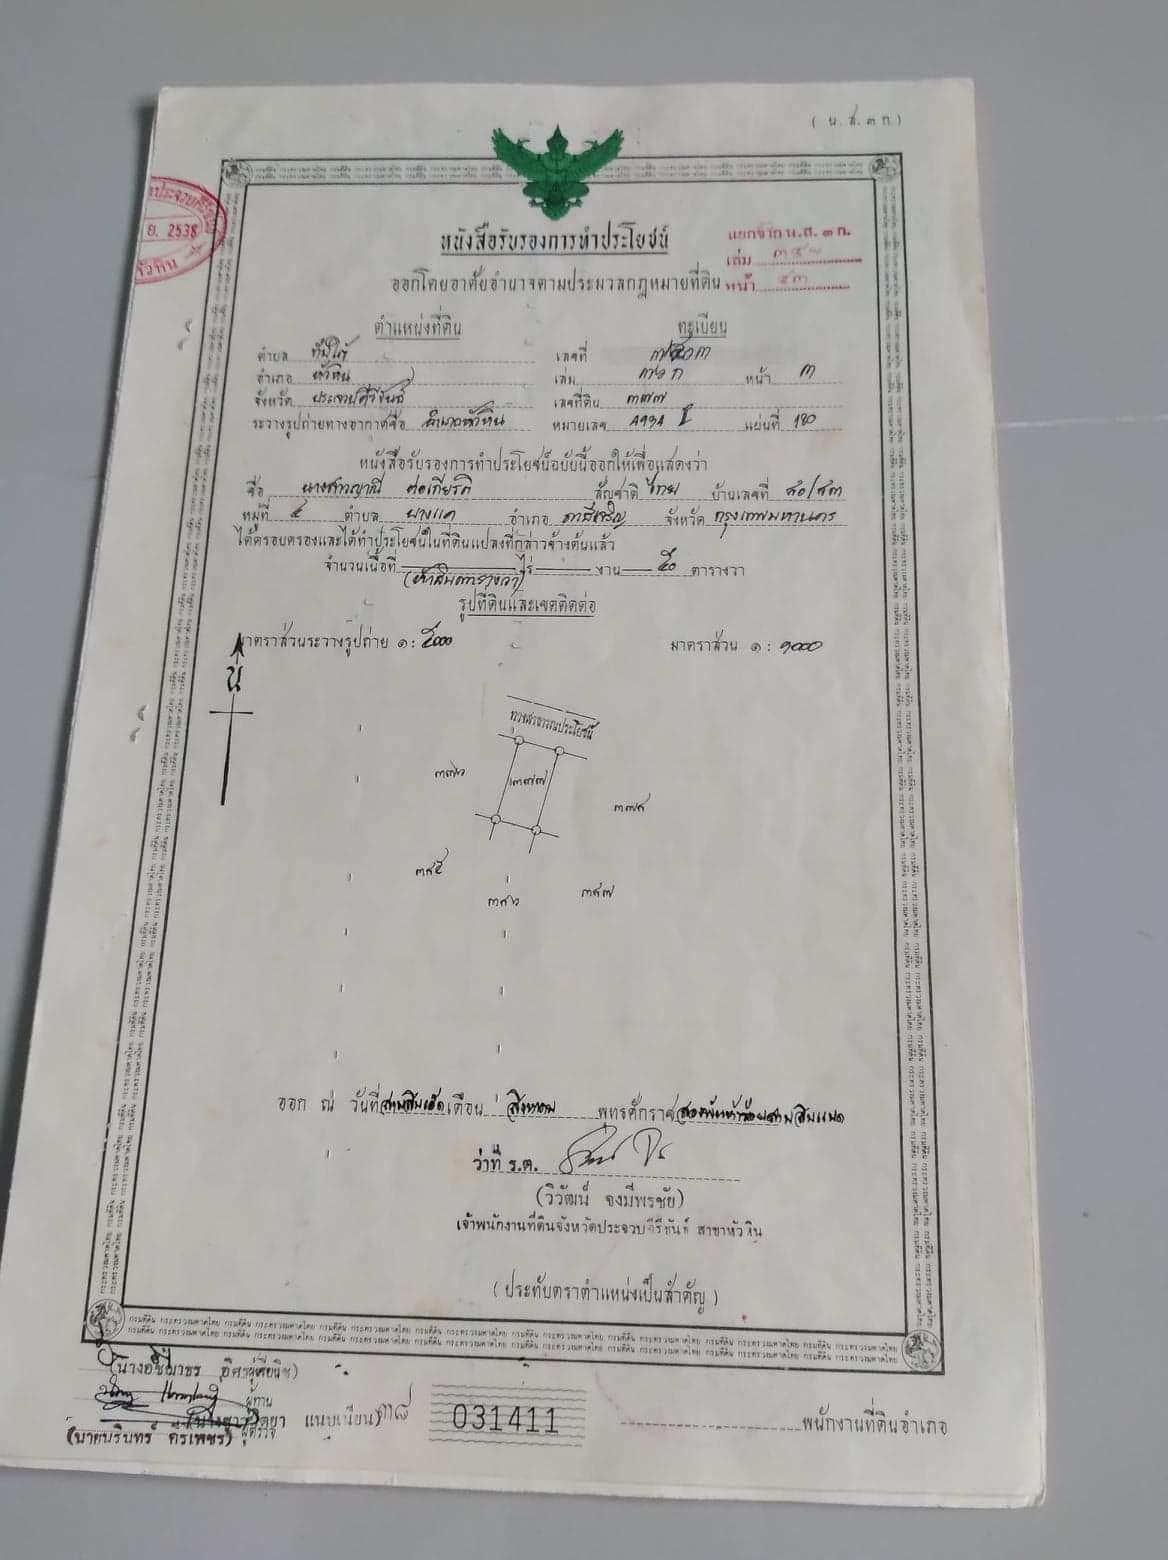 ( น.ส.๓ ก )
หนังสือรับรองการทำประโยชน์
แยกจาก น.ส. ๓ ก.
ออกโดยอาศัยอำนาจตามประมวลกฎหมายที่ดิน
เล่ม ๓๔๗
หน้า ๔๓
ย. 2538
ตำแหน่งที่ดิน
ทะเบียน
ตำบล ทับใต้
เลขที่
อำเภอ หัวหิน
เล่ม ก หน้า ๓
จังหวัด ประจวบคีรีขันธ์
เลขที่ดิน ๓๗๗
ระวางรูปถ่ายทางอากาศชื่อ อำเภอหัวหิน
หมายเลข 4934 I แผ่นที่ 180
หนังสือรับรองการทำประโยชน์ฉบับนี้ออกให้เพื่อแสดงว่า
ชื่อ ต่อเกียรติ สัญชาติ ไทย บ้านเลขที่
หมู่ที่ ๔ ตำบล บางแค อำเภอ ภาษีเจริญ จังหวัด กรุงเทพมหานคร
ได้ครอบครองและได้ทำประโยชน์ในที่ดินแปลงที่กล่าวข้างต้นแล้ว
จำนวนเนื้อที่ ไร่ งาน ๕๐ ตารางวา
(ห้าสิบตารางวา)
รูปที่ดินและเขตติดต่อ
มาตราส่วนระวางรูปถ่าย ๑ : ๕๐๐๐
มาตราส่วน ๑ : ๑๐๐๐
น
ทางสาธารณประโยชน์
๓๗๖
๓๗๗
๓๗๘
๓๘๕
๓๘๖
๓๘๗
ออก ณ วันที่ สามสิบเอ็ด เดือน สิงหาคม พุทธศักราช สองพันห้าร้อยสามสิบแปด
ว่าที่ ร.ต.
(วิวัฒน์ จงมีพรชัย)
เจ้าพนักงานที่ดินจังหวัดประจวบคีรีขันธ์ สาขาหัวหิน
(ประทับตราตำแหน่งเป็นสำคัญ)
กรมที่ดิน กระทรวงมหาดไทย
ผู้เขียน
ผู้ทาน
แนบเนียน)
๓๘
031411
พนักงานที่ดินอำเภอ
ผู้ตรวจ